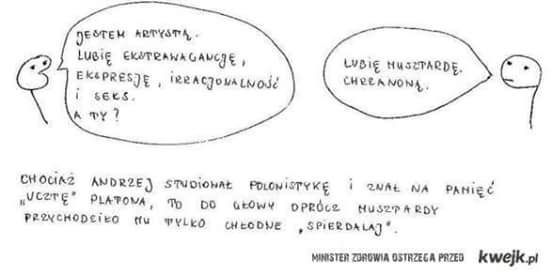 JESTEM ARTYSTĄ.
LUBIĘ EKSTRAWAGANCJĘ,
EKSPRESJĘ, IRRACJONALNOŚĆ
I SEKS.
A TY?
LUBIĘ MUSZTARDĘ.
CHRZANONĄ.
CHOCIAŻ ANDRZEJ STUDIOWAŁ POLONISTYKĘ I ZNAŁ NA PAMIĘĆ
„UCZTĘ" PLATONA, TO DO GŁOWY OPRÓCZ MUSZTARDY
PRZYCHODZIŁO MU TYLKO CHŁODNE „SPIERDALAJ".
MINISTER ZDROWIA OSTRZEGA PRZED kwejk.pl